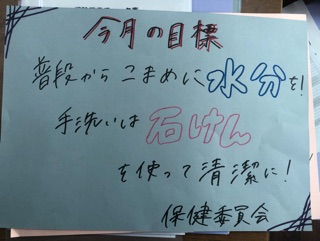 今月の目標
普段からこまめに水分を!
手洗いは石けん
を使って清潔に!
保健委員会